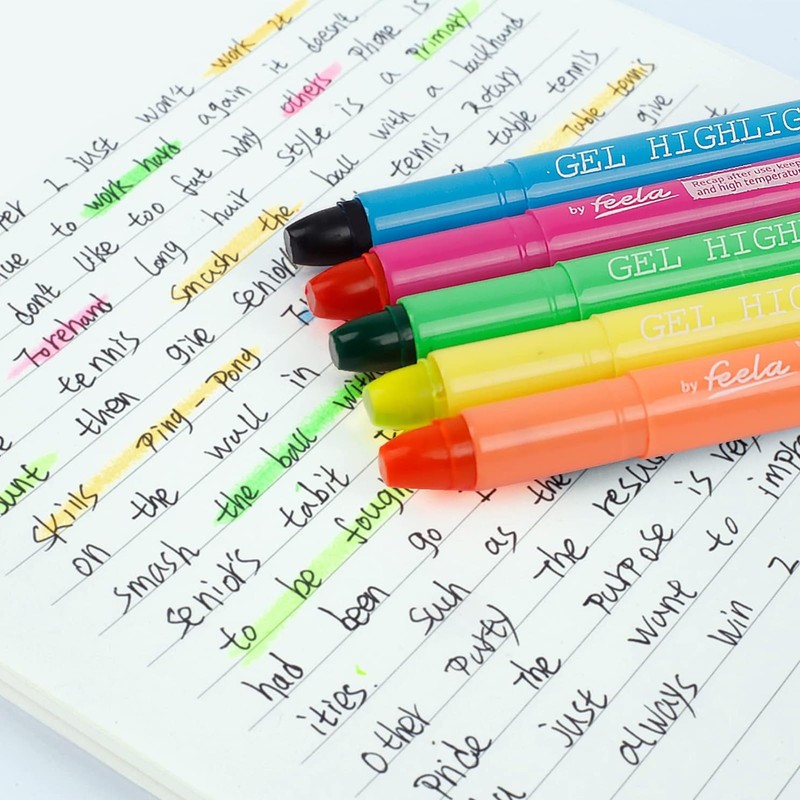 2 just won't work it
to work hard again it doesn't
don't like too fat why others phone is
Forehand long hair style is a primary
tennis smash the ball with a backhand
then give senior tennis Rotary
skills Ping-Pong table tennis
on the wall in Table tennis
smash the ball with give
senior's tabit
to be fough
had been go
ities. such as the
Other Party the resu
Pride the purpose is ver
just want to impro
always win 2
GEL HIGHLIG
by feela
Recap after use, keep
and high temperatu
GEL HIGH
GEL HIG
by feela